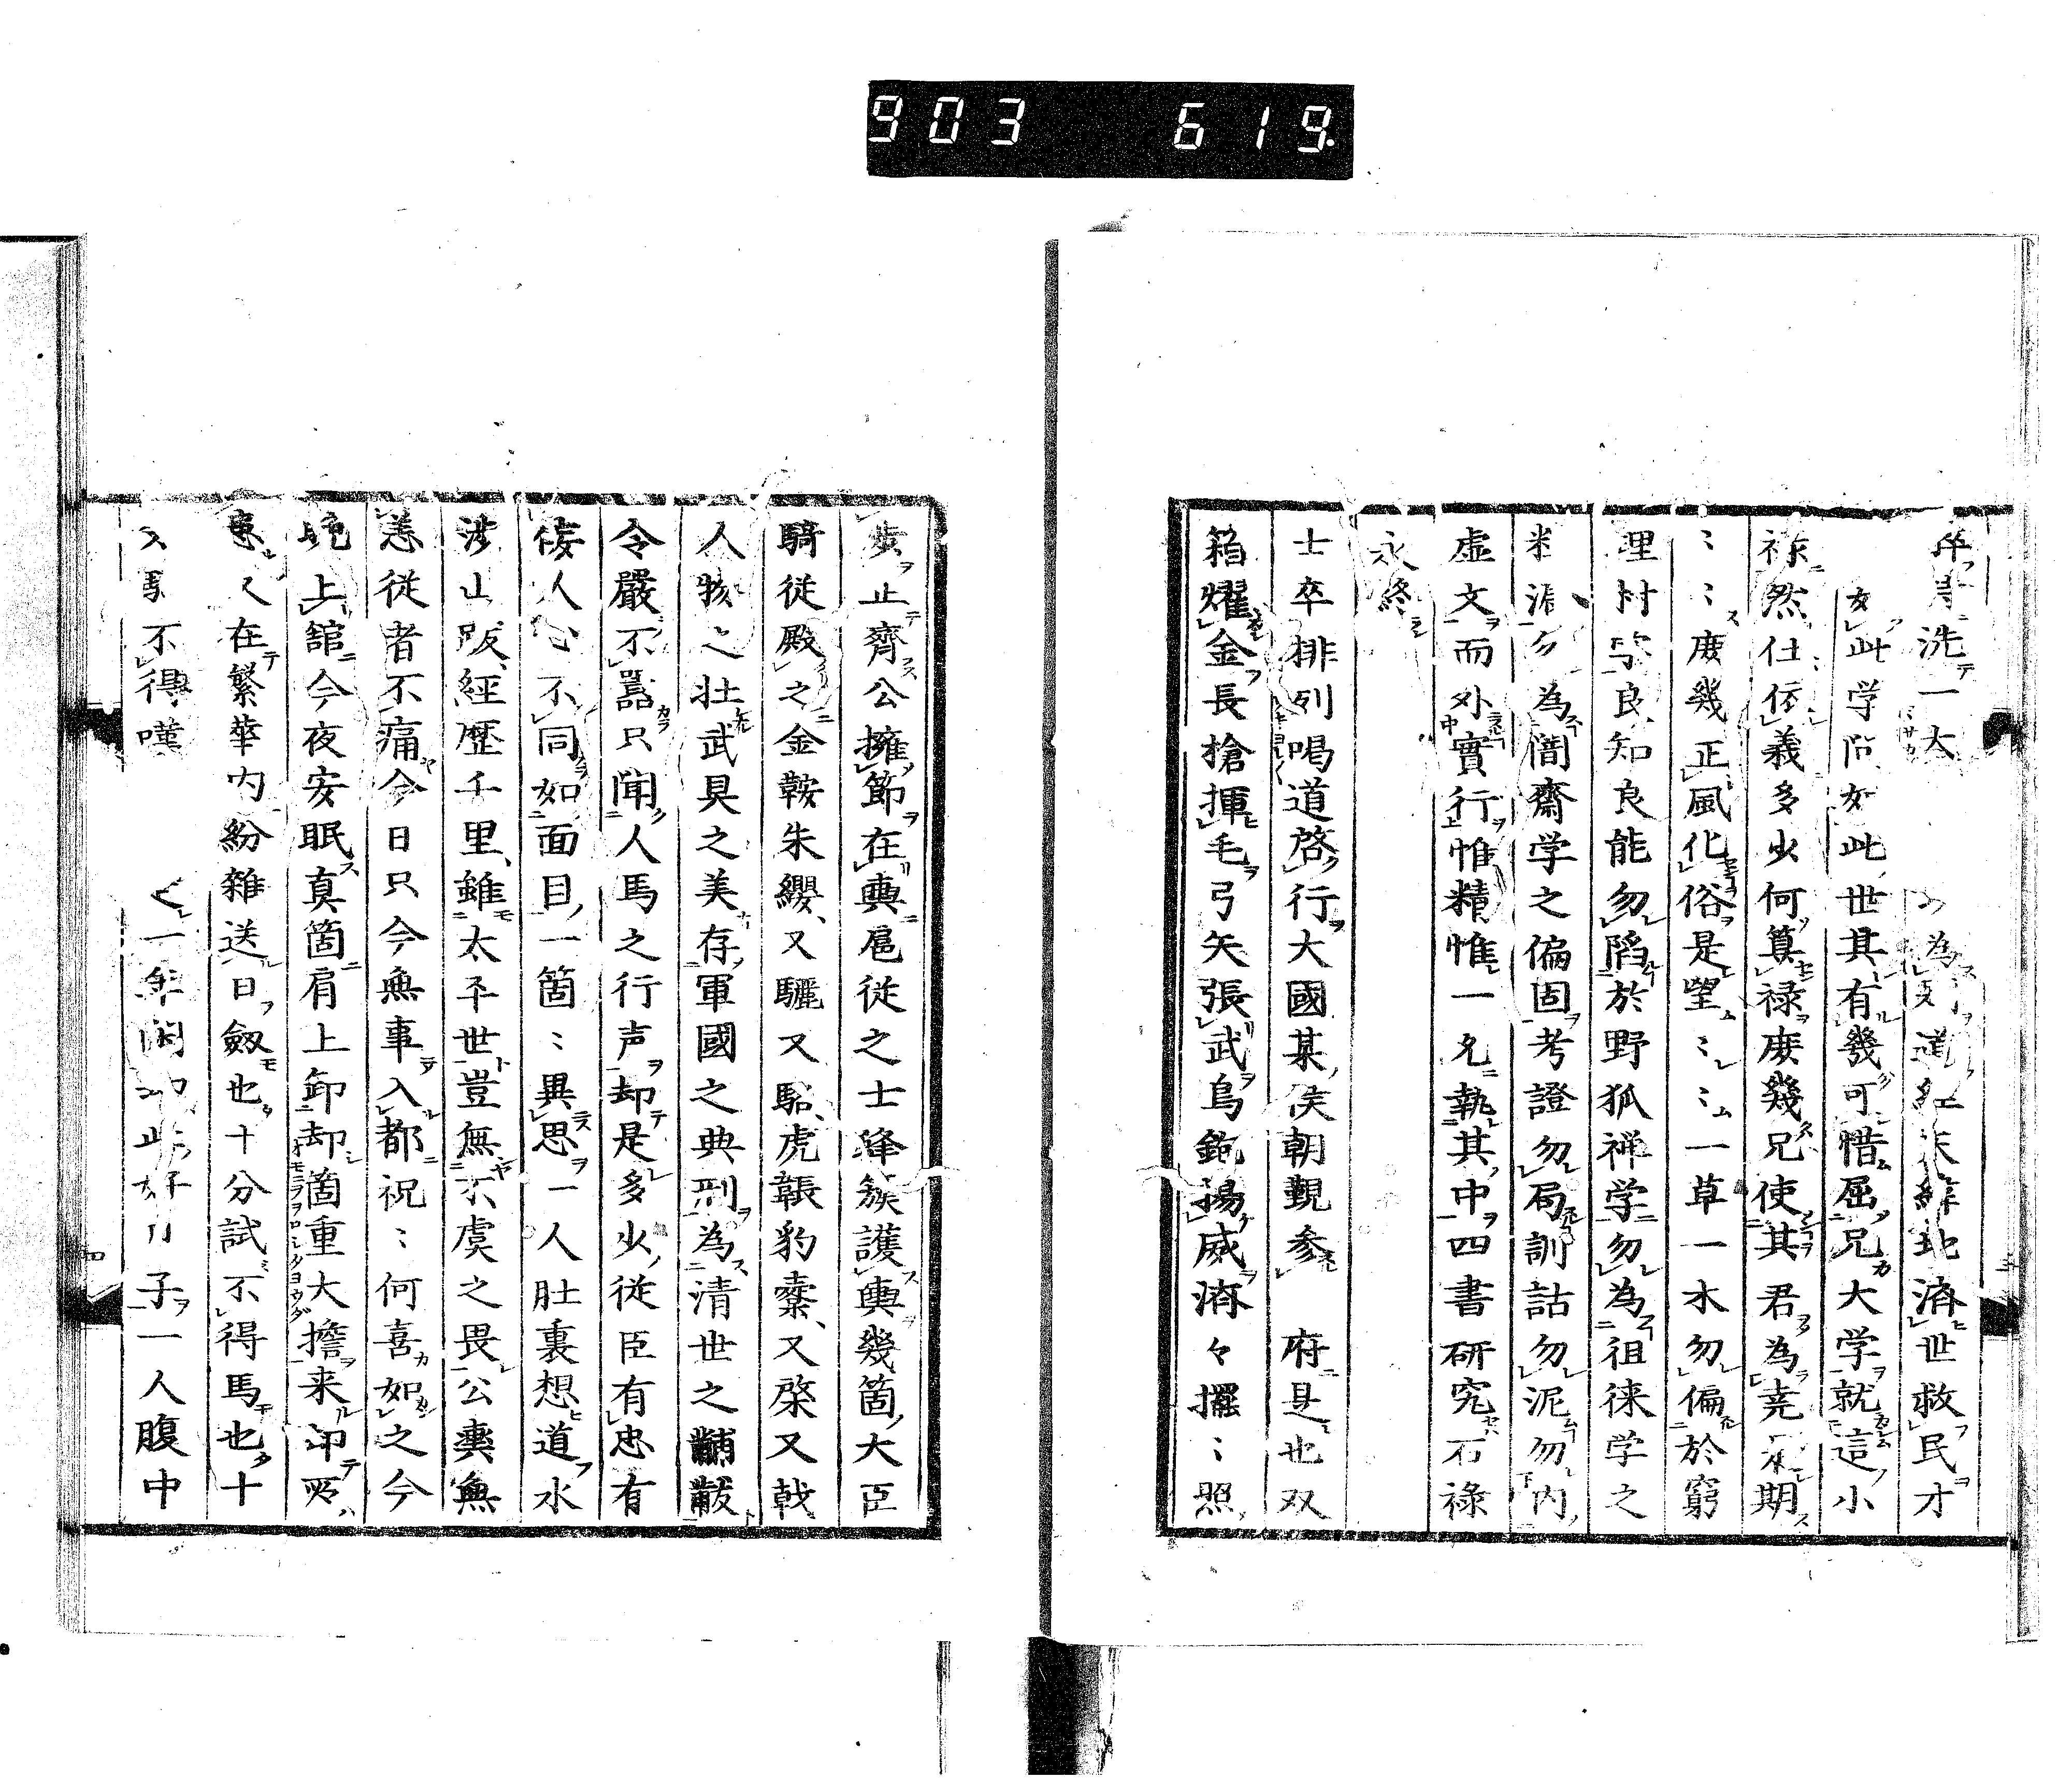 903 619.
洗一大 為 道 済世救民才
女此学問如此世其有幾可惜屈兄大学就這小
禄然仕依義多少何算禄庶幾兄使其君為堯 期
〻〻庶幾正風化俗是望〻〻一草一木勿偏於窮
理村学良知良能勿陷於野狐禅学勿為徂徠学之
勿為闇齋学之偏固考證勿局訓詁勿泥勿内
虚文而外實行惟精惟一允執其中四書研究石禄
永終
士卒排列喝道啓行大國某侯朝覲参 府是也双
箱耀金長槍揮毛弓矢張武鳥銃揚威濟々擺〻照
歩止齊公擁節在輿扈從之士鋒簇護輿幾箇大臣
騎従殿之金鞍朱纓又驪又駱虎韔豹櫜又棨又戟
人物之壮武具之美存軍國之典刑為清世之黼黻
令嚴不嚣只聞人馬之行声却是多少從臣有忠有
侫人心不同如面目一箇〻異思一人肚裏想道水
渉山跋經歴千里雖太平世豈無不虞之畏公輿無
恙従者不痛今日只今無事入都祝〻何喜如之今
晩上舘今夜安眠真箇肩上卸却箇重大擔来
又在繁華内紛雑送日劔也十分試不得馬也十
馭不得嘆 一 閑 此好 子一人腹中
三
四